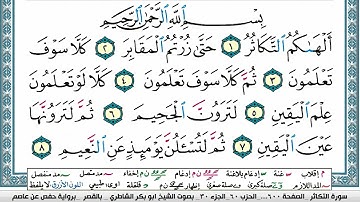 بِسْمِ اللَّهِ الرَّحْمَٰنِ الرَّحِيمِ
أَلْهَىٰكُمُ التَّكَاثُرُ ١ حَتَّىٰ زُرْتُمُ الْمَقَابِرَ ٢ كَلَّا سَوْفَ
تَعْلَمُونَ ٣ ثُمَّ كَلَّا سَوْفَ تَعْلَمُونَ ٤ كَلَّا لَوْ تَعْلَمُونَ
عِلْمَ الْيَقِينِ ٥ لَتَرَوُنَّ الْجَحِيمَ ٦ ثُمَّ لَتَرَوُنَّهَا
عَيْنَ الْيَقِينِ ٧ ثُمَّ لَتُسْـَٔلُنَّ يَوْمَئِذٍ عَنِ النَّعِيمِ ٨
سورة التكاثر الصفحة ٦٠٠ الحزب ٦٠ الجزء ٣٠ بصوت الشيخ أبو بكر الشاطري بالقصر برواية حفص عن عاصم